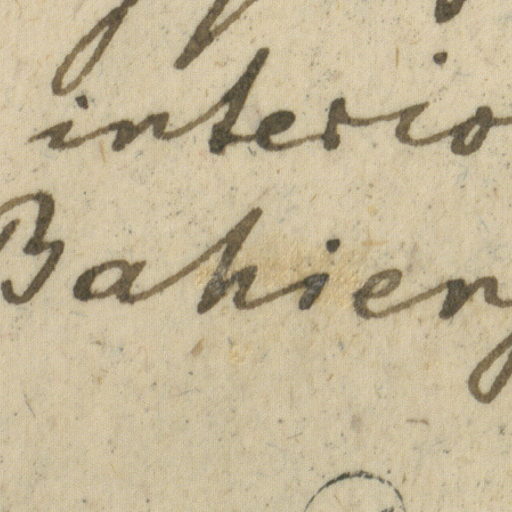 interio
Bahien